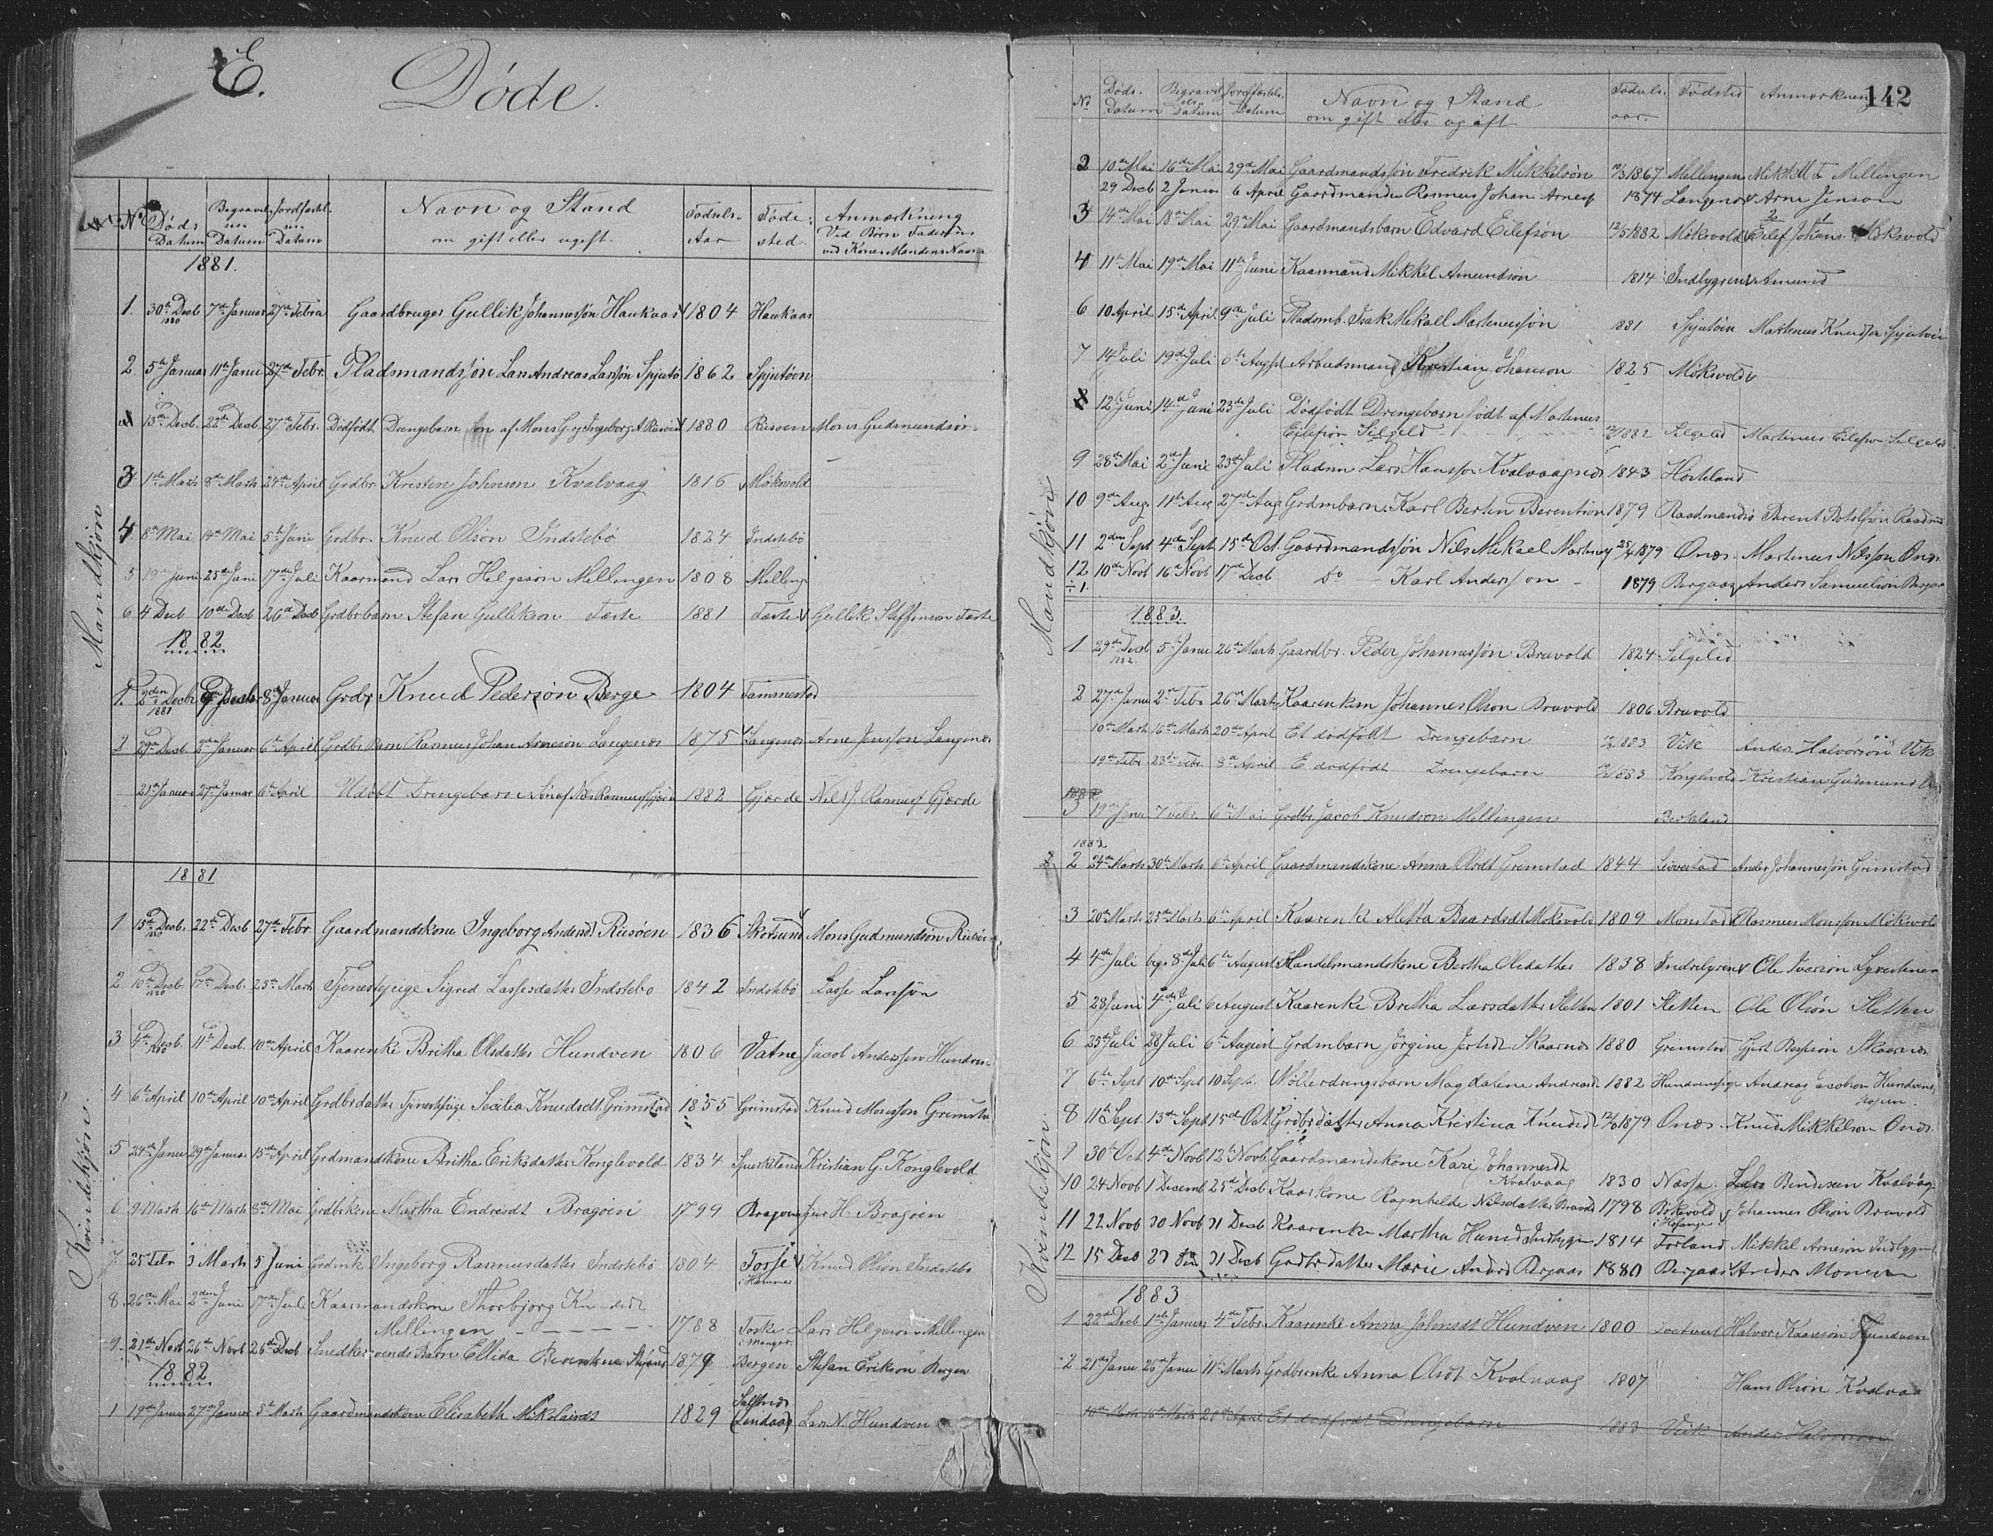 E. Døde.
No Døds Datum Begravel. Datum Jordfæstel. Datum Navn og Stand Fødsels- Føde- Anmærkning
om gift eller ugift. Aar sted. Ved Børn Faderens
ved Koner Mandens Navn
1881.
Mandkjøn
1. 30te Decb 1880 7de Januar 27de Febru Gaardbruger Gullik Johannessøn Haukaas 1804 Haukaas
2 5te Januar 11te Janu 27de Febr. Pladsmandssøn Lars Andreas Larssøn Spjutø 1862 Spjutøen
15de Decb. 22de Decb 27de Febr. Dødfødt Drengebarn søn af Mons G. og Ingeborg A. Risøen 1880 Risøen Mons Gudmundsøn
3 1ste Marts 8de Marts 24de April Grdbr. Kristen Johnsen Kvalvaag 1816 Mokvold
4 8de Mai 14de Mai 5te Juni Grdbr. Knud Olson Indstebø 1824 Indstebø
5 19de Juni 25de Juni 17de Juli Kaarmand Lars Helgesøn Mellingen 1808 Melling
6 4 Decb 10de Decb 26de Decb Grdbrbarn Stefan Gullikson Tøste 1881 Tøste Gullik Steffenson Tøste
1882
1. 2den Decb 1881 9de Decb. 8de Januar Grdbr Knud Pedersøn Berge 1804 Tammestad
2 29de Decb. 2den Januar 6te April Grdbr Barn Rasmus Johan Arnesøn Langenes 1875 Langenes Arne Jensson Langenes
21de Januar 27de Januar 6te April Udøbt Drengebarn Søn af Nils Rasmus Gjerde 1882 Gjerde Nils J. Rasmus Gjerde
1881
Kvindekjøn.
1 15de Decb. 1880 22de Decb 27de Febr Gaardmandskone Ingeborg Andersd. Risøen 1836 Skotsund Mons Gudmundsøn Risøen
2 10de Decb. 1880 17de Decb. 25de Marts Tjenestpige Sigrid Lassesdatter Indstebø 1842 Indstebø Lasse Larssøn
3 4de Decb. 1880 11te Decb. 10de April Kaarenke Britha Olsdatter Hundven 1806 Vatne Jacob Anderssøn Hundven
4 6te April 10de April 10de April Grdbrdatter Tjenestpige Secilia Knudsdt. Grimstad 1855 Grimstad Knud Monsson Grimsta
5 24de Januar 29de Januar 15de April Grdmandskone Britha Eriksdatter Konglevold 1834 Spurkeland Kristian G. Konglevold
6 9 Marts 16de Marts 8de Mai Grdbrkone Martha Endresdt Bragøen 1799 Bragøen H. Bragøen
7. 25 Febr 3 Marts 5 Juni Grdmk Ingeborg Rasmusdatter Indstebø 1804 Fosse i Hammer Knud Olson Indstebø
8 26de Mai 2den Juni 17de Juli Kaarmandskone Thorbjørg Knudsdt
Mellingen - - - - 1788 Foske i Manger Lars Helgeson Mellingen
9. 21de Novb 26de Novb 26de Decb Snedkersvends Barn Ellida Berentine 1879 Bergen Stefan Erikson Bergen
1882
1 19de Januar 27de Januar 5te Marts Gaardmandskone Elisabeth Miklaisdt 1829 Lindaas Lars N. Hundven
142
No Døds. Datum Begravel. Datum Jordfæstels. Datum Navn og Stand Fødsels- Fødsted Anmærkning
om gift eller ugift. aar.
Mandkjøn
2 10de Mai 16de Mai 29de Mai Gaardmandssøn Fredrik Mikkelsøn 1867 Mellingen Mikkel F Mellingen
29 Decb 2 Januar 6 April Gaardmands Rasmus Johan Arnes 1874 Langenes Arne Jenson
3 14de Mai 18de Mai 29de Mai Gaardmandsbarn Edvard Eilefsøn 12/5 1882 Mokvold Eilef Johans Mokvold
4 11te Mai 19de Mai 11te Juni Kaarmand Mikkel Amundsøn 1814 Indlygren Amund
6 10 April 15de April 9de Juli Pladsmb. Isak Mikall Martenussøn 1881 Spjutøen Martenus Knudsøn Spjutøen
7 14 Juli 19de Juli 6te August Arbeidsmand Kristian Johanson 1825 Mokvold
8 12te Juni 14de Juni 23de Juli Dødfødt Drengebarn født af Martenus
Eilefsøn Selgeld - - 12/6 1882 Selgeld Martenus Eilefsøn Selgeld
9 28de Mai 2de Juni 23de Juli Pladsm Lars Hanssøn Kvalvaagnes 1843 Hosteland
10 9de Aug. 11te Aug 27de Aug Grdmbarn Karl Berten Berentson 1879 Raadmandsø Berent Botolfsøn
11 2den Sept 4de Sept 15de Oct. Gaardmandssøn Nils Mikael Martenus 25/4 1879 Onæs. Martenus Nilssøn Onæs
12 10de Novb 16 Novb 17de Decb Do - Karl Anderssøn - 1879 Bergaas Anders Samuelson Bergaas
÷1.
1883.
1 29de Decb 1882. 5te Januar 26de Marts Gaardbr. Peder Johannessøn Bruvold 1824 Selgeld
2 27de Januar 2den Febr 26de Marts Kaarenkem Johannes Olson Bruvold 1806 Bruvold
10de Marts 16de Marts 20de April Et dødfødt Drengebarn 1883 Vik Anders Halvorsøn Vik
19de Febr. 23de Febr. 8de April E dødfødt Drengebarn 1883 Konglevold Kristian Gudmund
3 19de Janu 7 Febr. 6te Mai Grdbr. Jacob Knudson Mellingen Berkeland
Kvindekjøn.
1882
2 24de Marts 30te Marts 6te April Gaardmandskone Anna Olsdt Grimstad 1844 Leiverstad Anders Johannessøn Grimstad
3 20de Marts 25de Marts 6te April Kaarenk. Aletta Baardsdt Mokvold 1809 Monstad Rasmus Monssøn Mokvold
4 4de Juli begr 8de Juli 6te August Handelsmandskone Bertha Olsdatter 1838 Indrelygren Ole Iverson
5 28 Juni 4de Juli 6 August Kaarenke Britha Larsdatter Sletten 1801 Sletten Ole Olsøn Sletten
6 25de Juli 28 Juli 6te August Grdmbarn Jørgine Skaarnes 1880 Grimstad Gjert Skaarnes
7 6te Sept 10de Sept 10 Sept. Magdalene Andreasd 1882 Andreas Jacobson Hundven
8 11te Sept 13de Sept 15de Oct Grdbrdatter Anna Kristina Knudsd 1879 Onæs. Knud Mikkelson Onæs
9 30te Oct 4de Novb 12te Novb. Gaardmandskone Kari Johannesdt
Kvalvaag 1830 Næsse Lars Bendiksen Kvalvaag
10 24 Novb 1 Decemb 25de Decb Kaarkone Ragnhilde Nilsdatter Bruvold 1798 Johannes Olson Bruvold
11 22 Novb 30 Novb 31 Decb Kaarenke Martha Hansd Indlygre 1814 Forland Mikkel Indlygre
12 15 Decb 31 Decb Grdbrdatter Marie Andersd Bergaas 1880 Bergaas Anders Monsen
1883
1 22de Decb 1ste Januar 4de Febr. Kaarenke Anna Johnsdt Hundven 1800 Halvor Hundven
2 21de Janu 26de Janu 11te Marts Grdbrenke Anna Olsdt Kvalvaag 1807 Hans Olson Kvalvaag
10de Marts 16de Marts 20de April Et dødfødt Drengebarn 1883 Vik Anders Halvorsøn